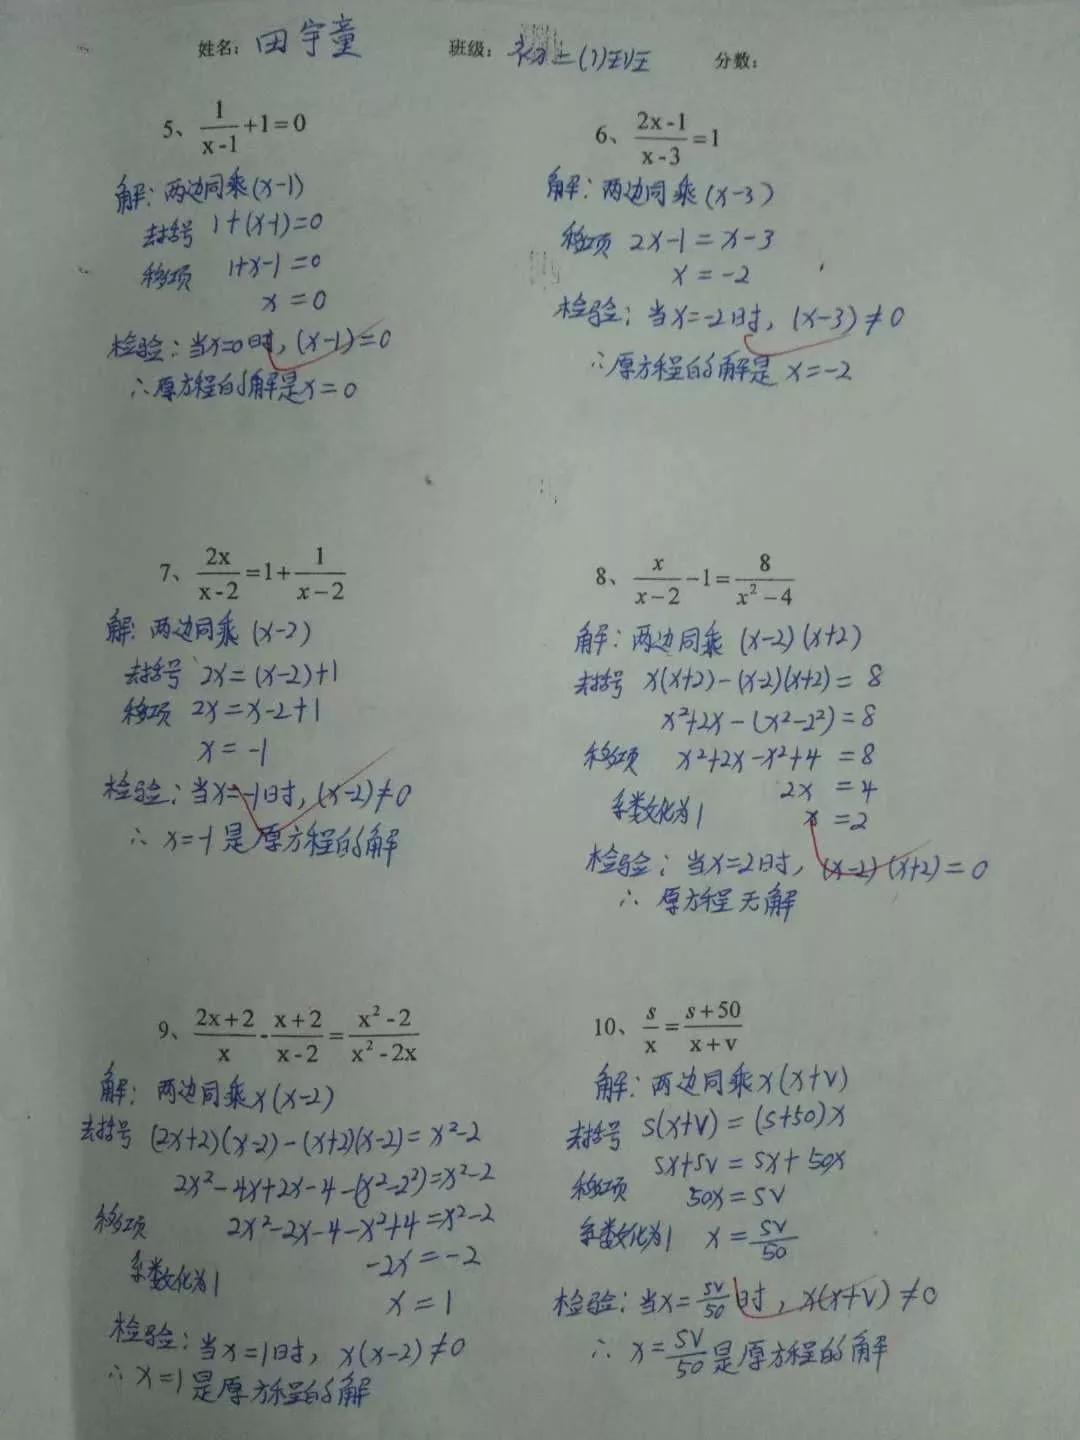 姓名: 田宇童 班级: 初二(1)班 分数:
5、 1/(x-1) +1=0
解: 两边同乘(x-1)
去括号 1+(x-1)=0
移项 1+x-1=0
x=0
检验: 当x=0时, (x-1)=0
∴原方程的解是x=0
6、 (2x-1)/(x-3) =1
解: 两边同乘(x-3)
移项 2x-1=x-3
x=-2
检验: 当x=-2时, (x-3)≠0
∴原方程的解是 x=-2
7、 2x/(x-2) =1+ 1/(x-2)
解: 两边同乘 (x-2)
去括号 2x=(x-2)+1
移项 2x=x-2+1
x=-1
检验: 当x=-1时, (x-2)≠0
∴ x=-1是原方程的解
8、 x/(x-2) -1= 8/(x²-4)
解: 两边同乘 (x-2)(x+2)
去括号 x(x+2)-(x-2)(x+2)=8
x²+2x-(x²-2²)=8
移项 x²+2x-x²+4=8
2x=4
系数化为1 x=2
检验: 当x=2时, (x-2)(x+2)=0
∴ 原方程无解
9、 (2x+2)/x - (x+2)/(x-2) = (x²-2)/(x²-2x)
解: 两边同乘x(x-2)
去括号 (2x+2)(x-2)-(x+2)(x-2)=x²-2
2x²-4x+2x-4-(x²-2²)=x²-2
移项 2x²-2x-4-x²+4=x²-2
-2x=-2
系数化为1
x=1
检验: 当x=1时, x(x-2)≠0
∴ x=1是原方程的解
10、 s/x = (s+50)/(x+v)
解: 两边同乘x(x+v)
去括号 s(x+v)=(s+50)x
sx+sv=sx+50x
移项 50x=sv
系数化为1 x=sv/50
检验: 当x=sv/50时, x(x+v)≠0
∴ x=sv/50是原方程的解